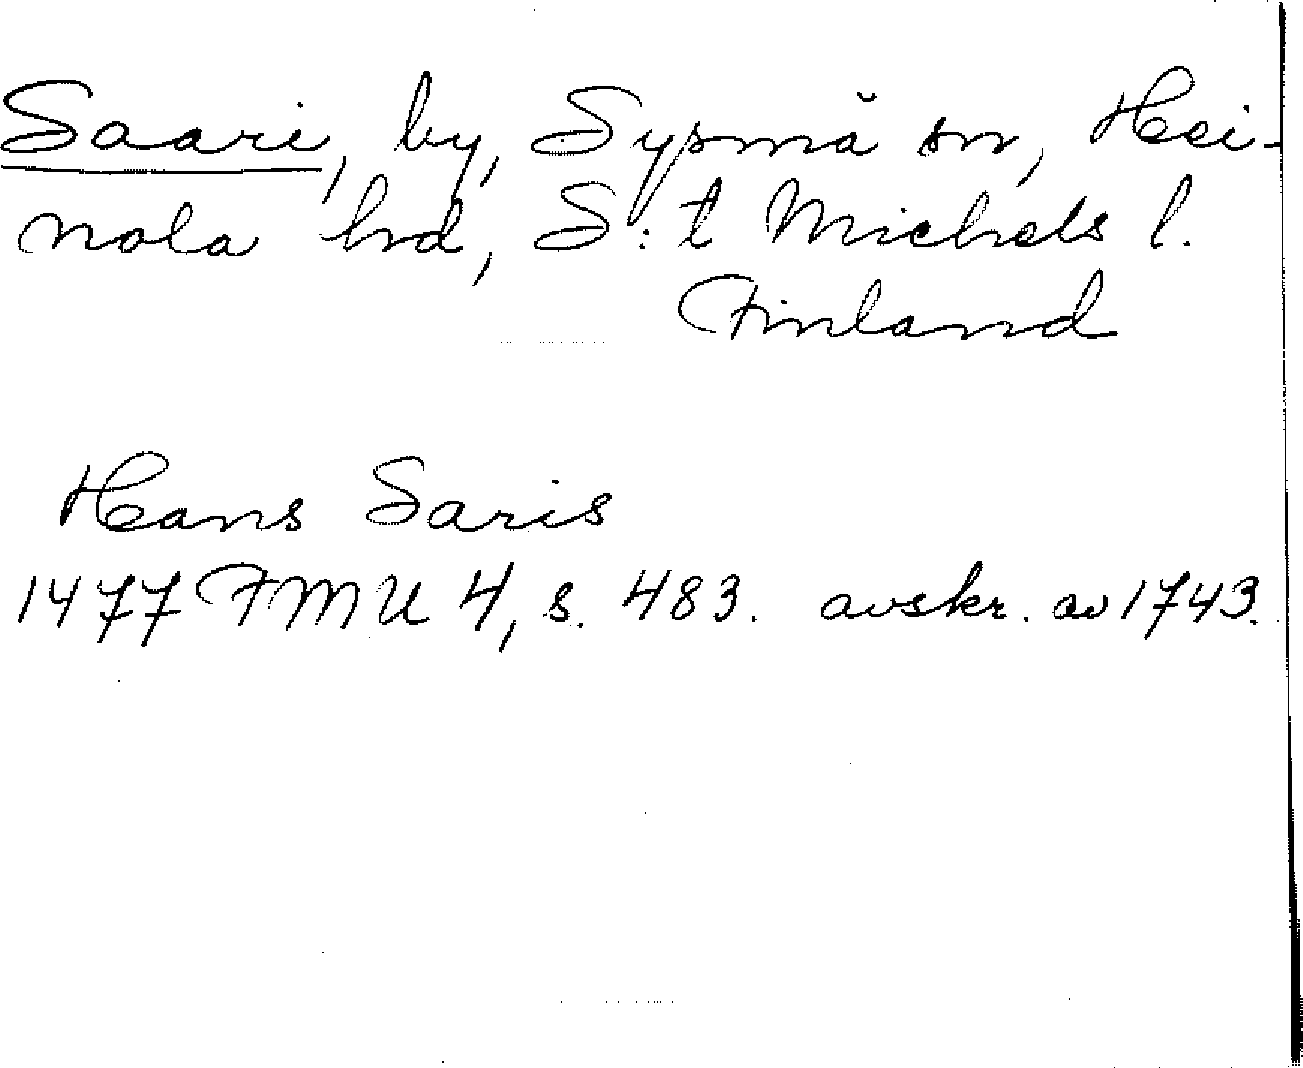 Saari, by, Sysmä sn, Hei-
nola hd, S:t Michels l.
Finland
Hans Saris
1477 FMU 4, s. 483. avskr. av 1743.